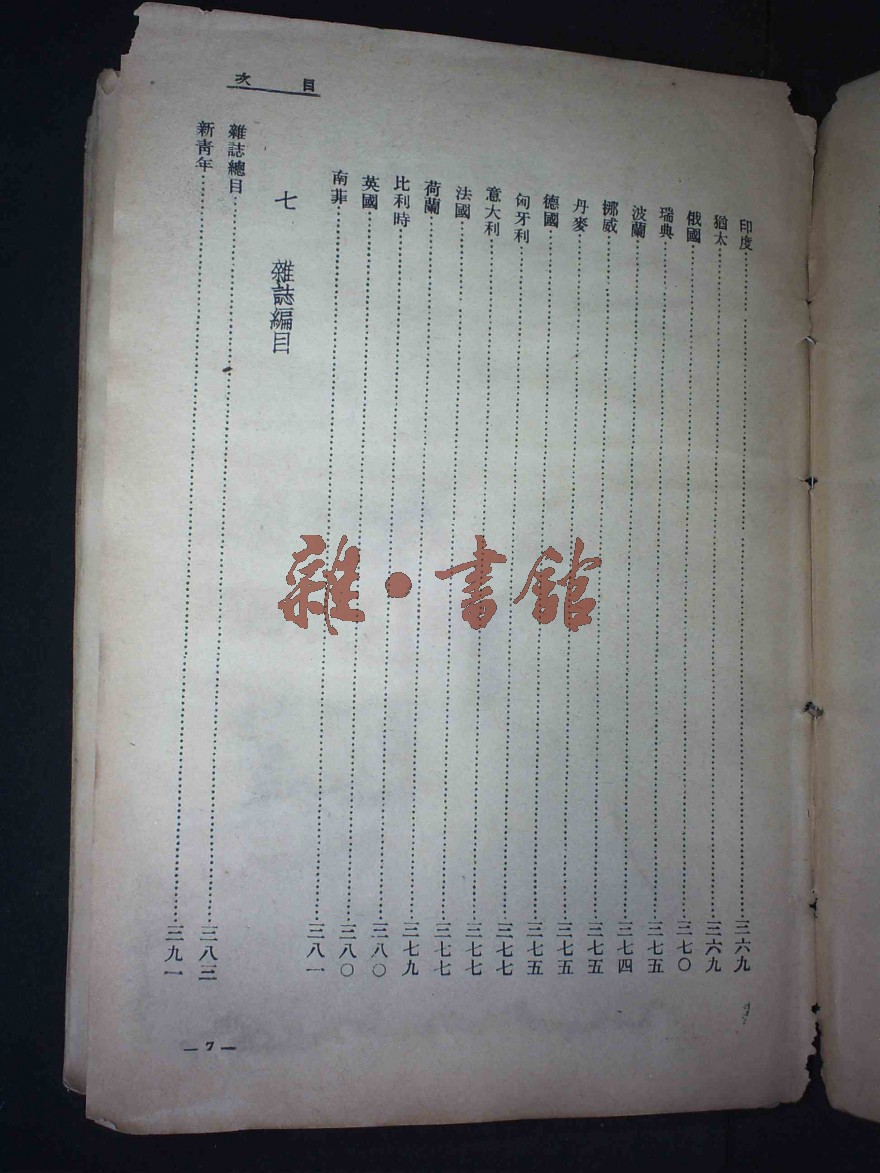 目次
印度……三六九
猶太……三六九
俄國……三七〇
瑞典……三七五
波蘭……三七四
挪威……三七五
丹麥……三七五
德國……三七五
匈牙利……三七七
意大利……三七七
法國……三七七
荷蘭……三七九
比利時……三八〇
英國……三八〇
南菲……三八一
七 雜誌編目
雜誌總目……三八三
新青年……三九一
—7—
雜·書館